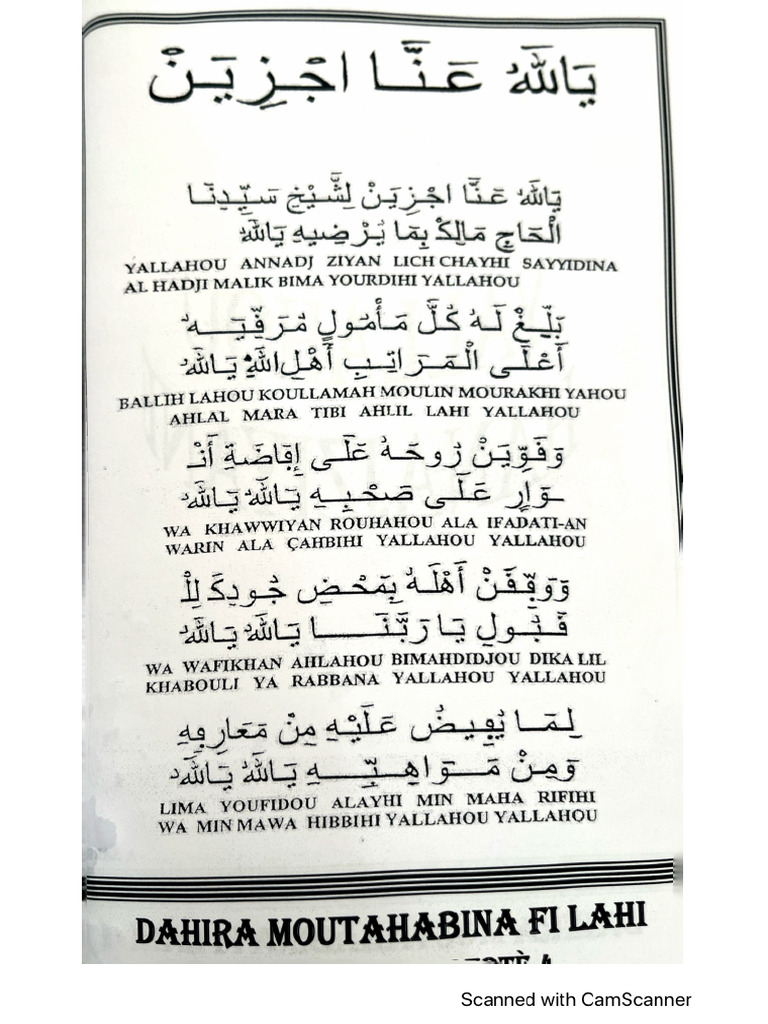 يَاللَّهُ عَنَّا اجْزِيَنْ
يَاللَّهُ عَنَّا اجْزِيَنْ لِشَّيْخِ سَيِّدِنَا
الْحَاجِ مَالِكْ بِمَا يُرْضِيهِ يَاللَّهُ
YALLAHOU ANNADJ ZIYAN LICH CHAYHI SAYYIDINA
AL HADJI MALIK BIMA YOURDIHI YALLAHOU
بَلِّغْ لَهُ كُلَّ مَأْمُولٍ مُرَقِّيَهُ
أَعْلَى الْمَرَاتِبِ أَهْلِ اللَّهِ يَاللَّهُ
BALLIH LAHOU KOULLAMAH MOULIN MOURAKHI YAHOU
AHLAL MARA TIBI AHLIL LAHI YALLAHOU
وَقَوِّيَنْ رُوحَهُ عَلَى إِفَاضَةِ أَنْـ
ـوَارٍ عَلَى صَحْبِهِ يَاللَّهُ يَاللَّهُ
WA KHAWWIYAN ROUHAHOU ALA IFADATI-AN
WARIN ALA ÇAHBIHI YALLAHOU YALLAHOU
وَوَفِّقَنْ أَهْلَهُ بِمَحْضِ جُودِكَ لِلْـ
ـقَبُولِ يَا رَبَّنَا يَاللَّهُ يَاللَّهُ
WA WAFIKHAN AHLAHOU BIMAHDIDJOU DIKA LIL
KHABOULI YA RABBANA YALLAHOU YALLAHOU
لِمَا يُفِيضُ عَلَيْهِ مِنْ مَعَارِفِهِ
وَمِنْ مَوَاهِبِّهِ يَاللَّهُ يَاللَّهُ
LIMA YOUFIDOU ALAYHI MIN MAHA RIFIHI
WA MIN MAWA HIBBIHI YALLAHOU YALLAHOU
DAHIRA MOUTAHABINA FI LAHI
Scanned with CamScanner